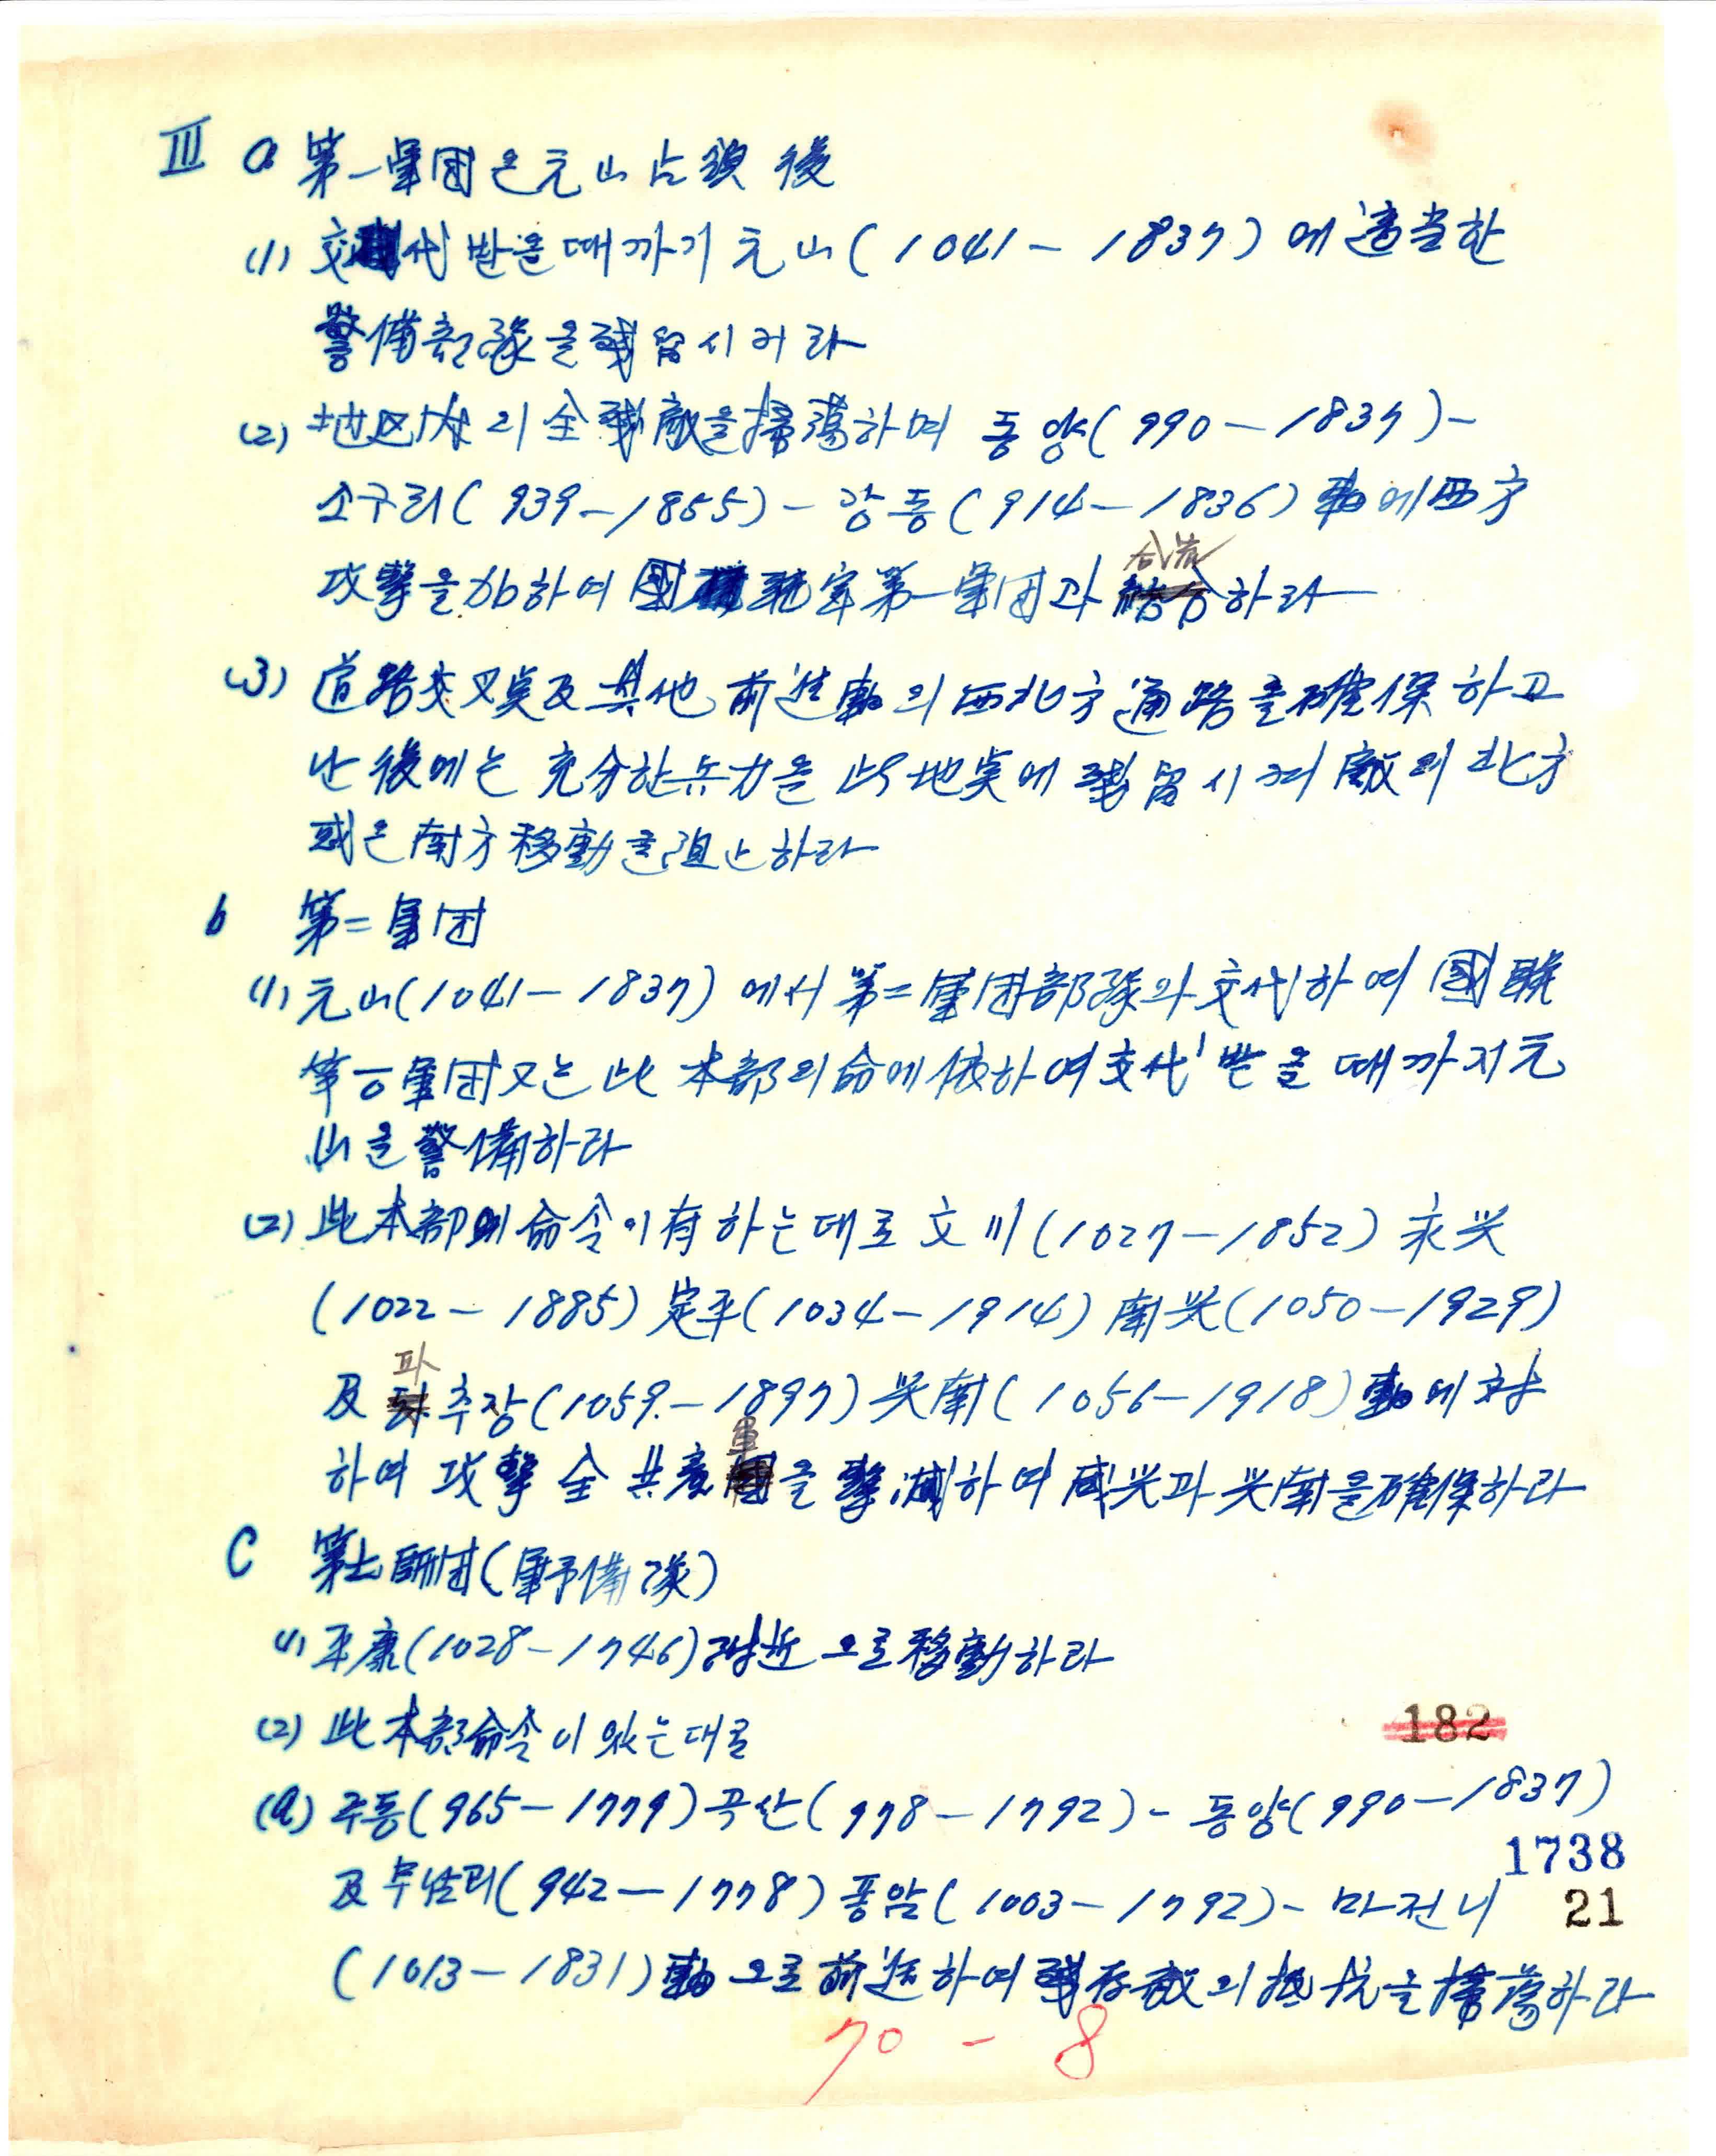 III a 第一軍団은 元山占領 後
(1) 交代 받을때까지 元山(1041-1837)에 適当한
警備部隊을 残留시키라
(2) 地区内의 全残敵을 掃蕩하며 동양(990-1837)-
소구리(939-1855)-광동(914-1836)軸에 西方
攻撃을 加하여 國 聯軍第一軍団과 合流하라
(3) 道路交叉点及其他 前進軸의 西北方通路를 確保하고
난 後에는 充分한 兵力을 此地点에 残留시켜 敵의 北方
或은 南方移動을 阻止하라
b 第二軍団
(1) 元山(1041-1837)에서 第二軍団部隊와 交代하여 國聯
第十軍団又는 此 本部의 命에 依하여 交代 받을 때까지 元
山을 警備하라
(2) 此本部의 命令이 有하는대로 文川(1027-1852) 永兴
(1022-1885) 定平(1034-1914) 南兴(1050-1929)
及 파추장(1059.-1897) 兴南(1056-1918)軸에 対
하여 攻撃 全 共産軍을 撃滅하며 咸兴과 兴南을 確保하라
C 第七師団(軍予備隊)
(1) 平康(1028-1746)附近으로 移動하라
(2) 此本部命令이 있는대로
182
(a) 주동(965-1779) 곡산(978-1792)-동양(990-1837)
1738
及 무산리(942-1778) 풍암(1003-1792)-마전니
21
(1013-1831)軸으로 前進하여 残存敵의 抵抗을 掃蕩하라
70-8